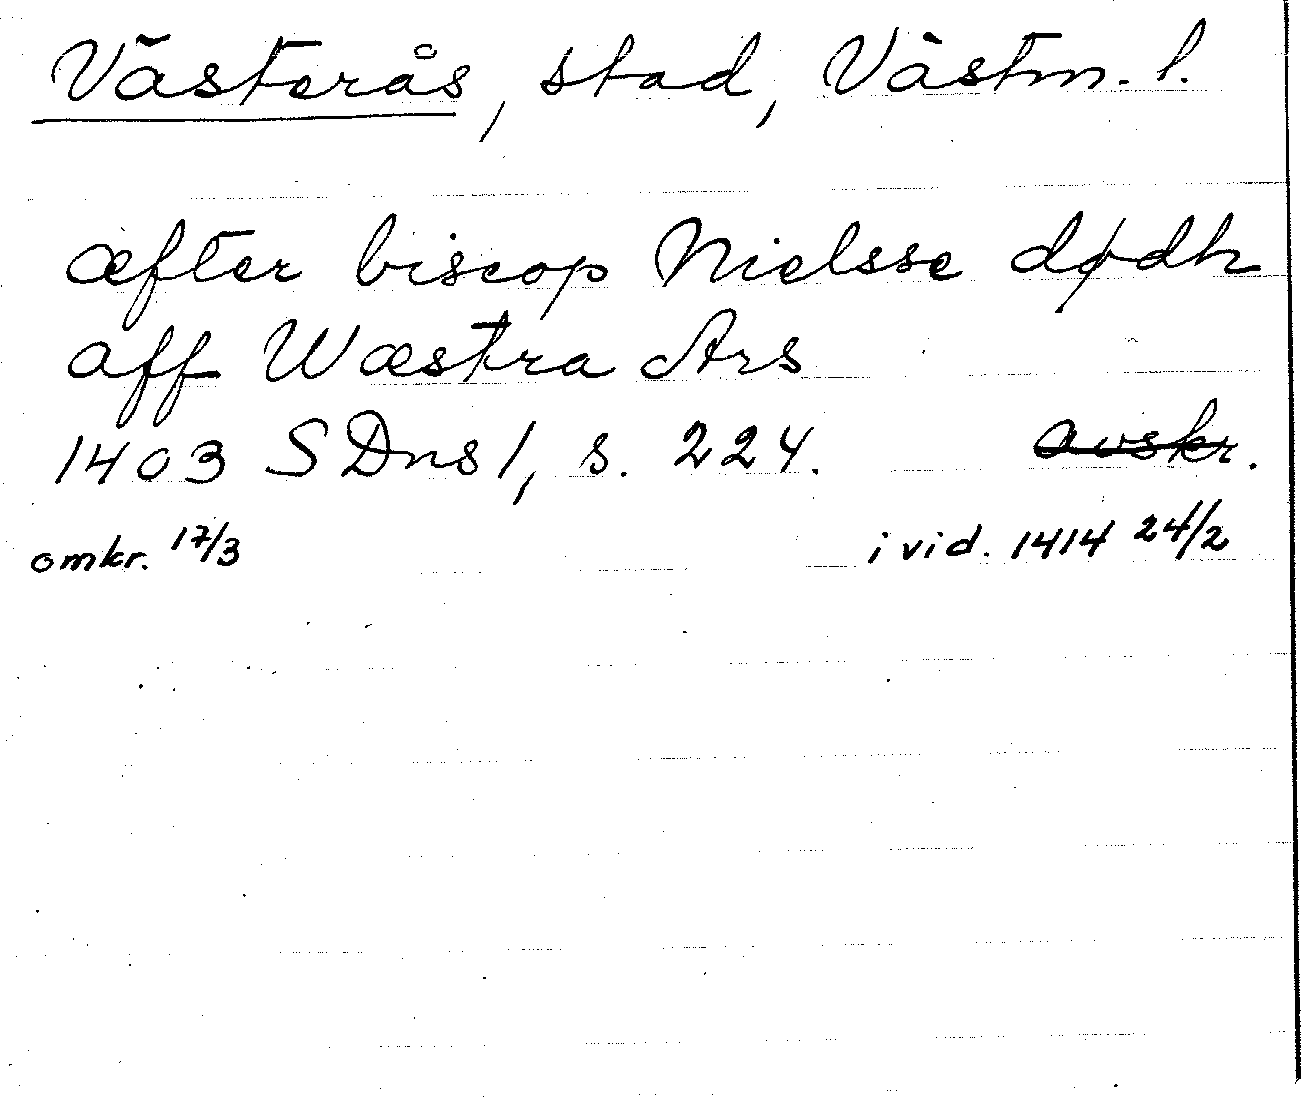 Västerås, stad, Västm. l.
æfter biscop Nielsse dødh
aff Wæstra Ars
1403 SDns 1, s. 224. avskr.
omkr. 17/3 i vid. 1414 24/2